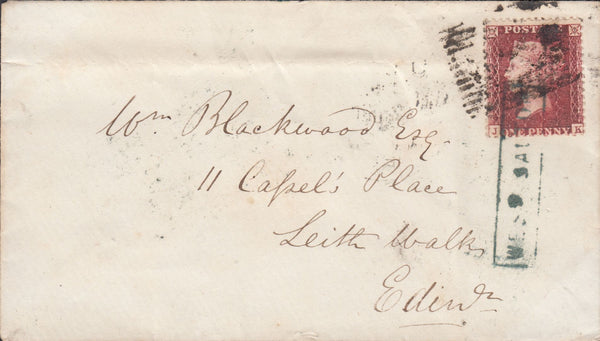 POSTAGE
J ONE PENNY K
Wm Blackwood Esq.
11 Cassel's Place
Leith Walk
Edinr